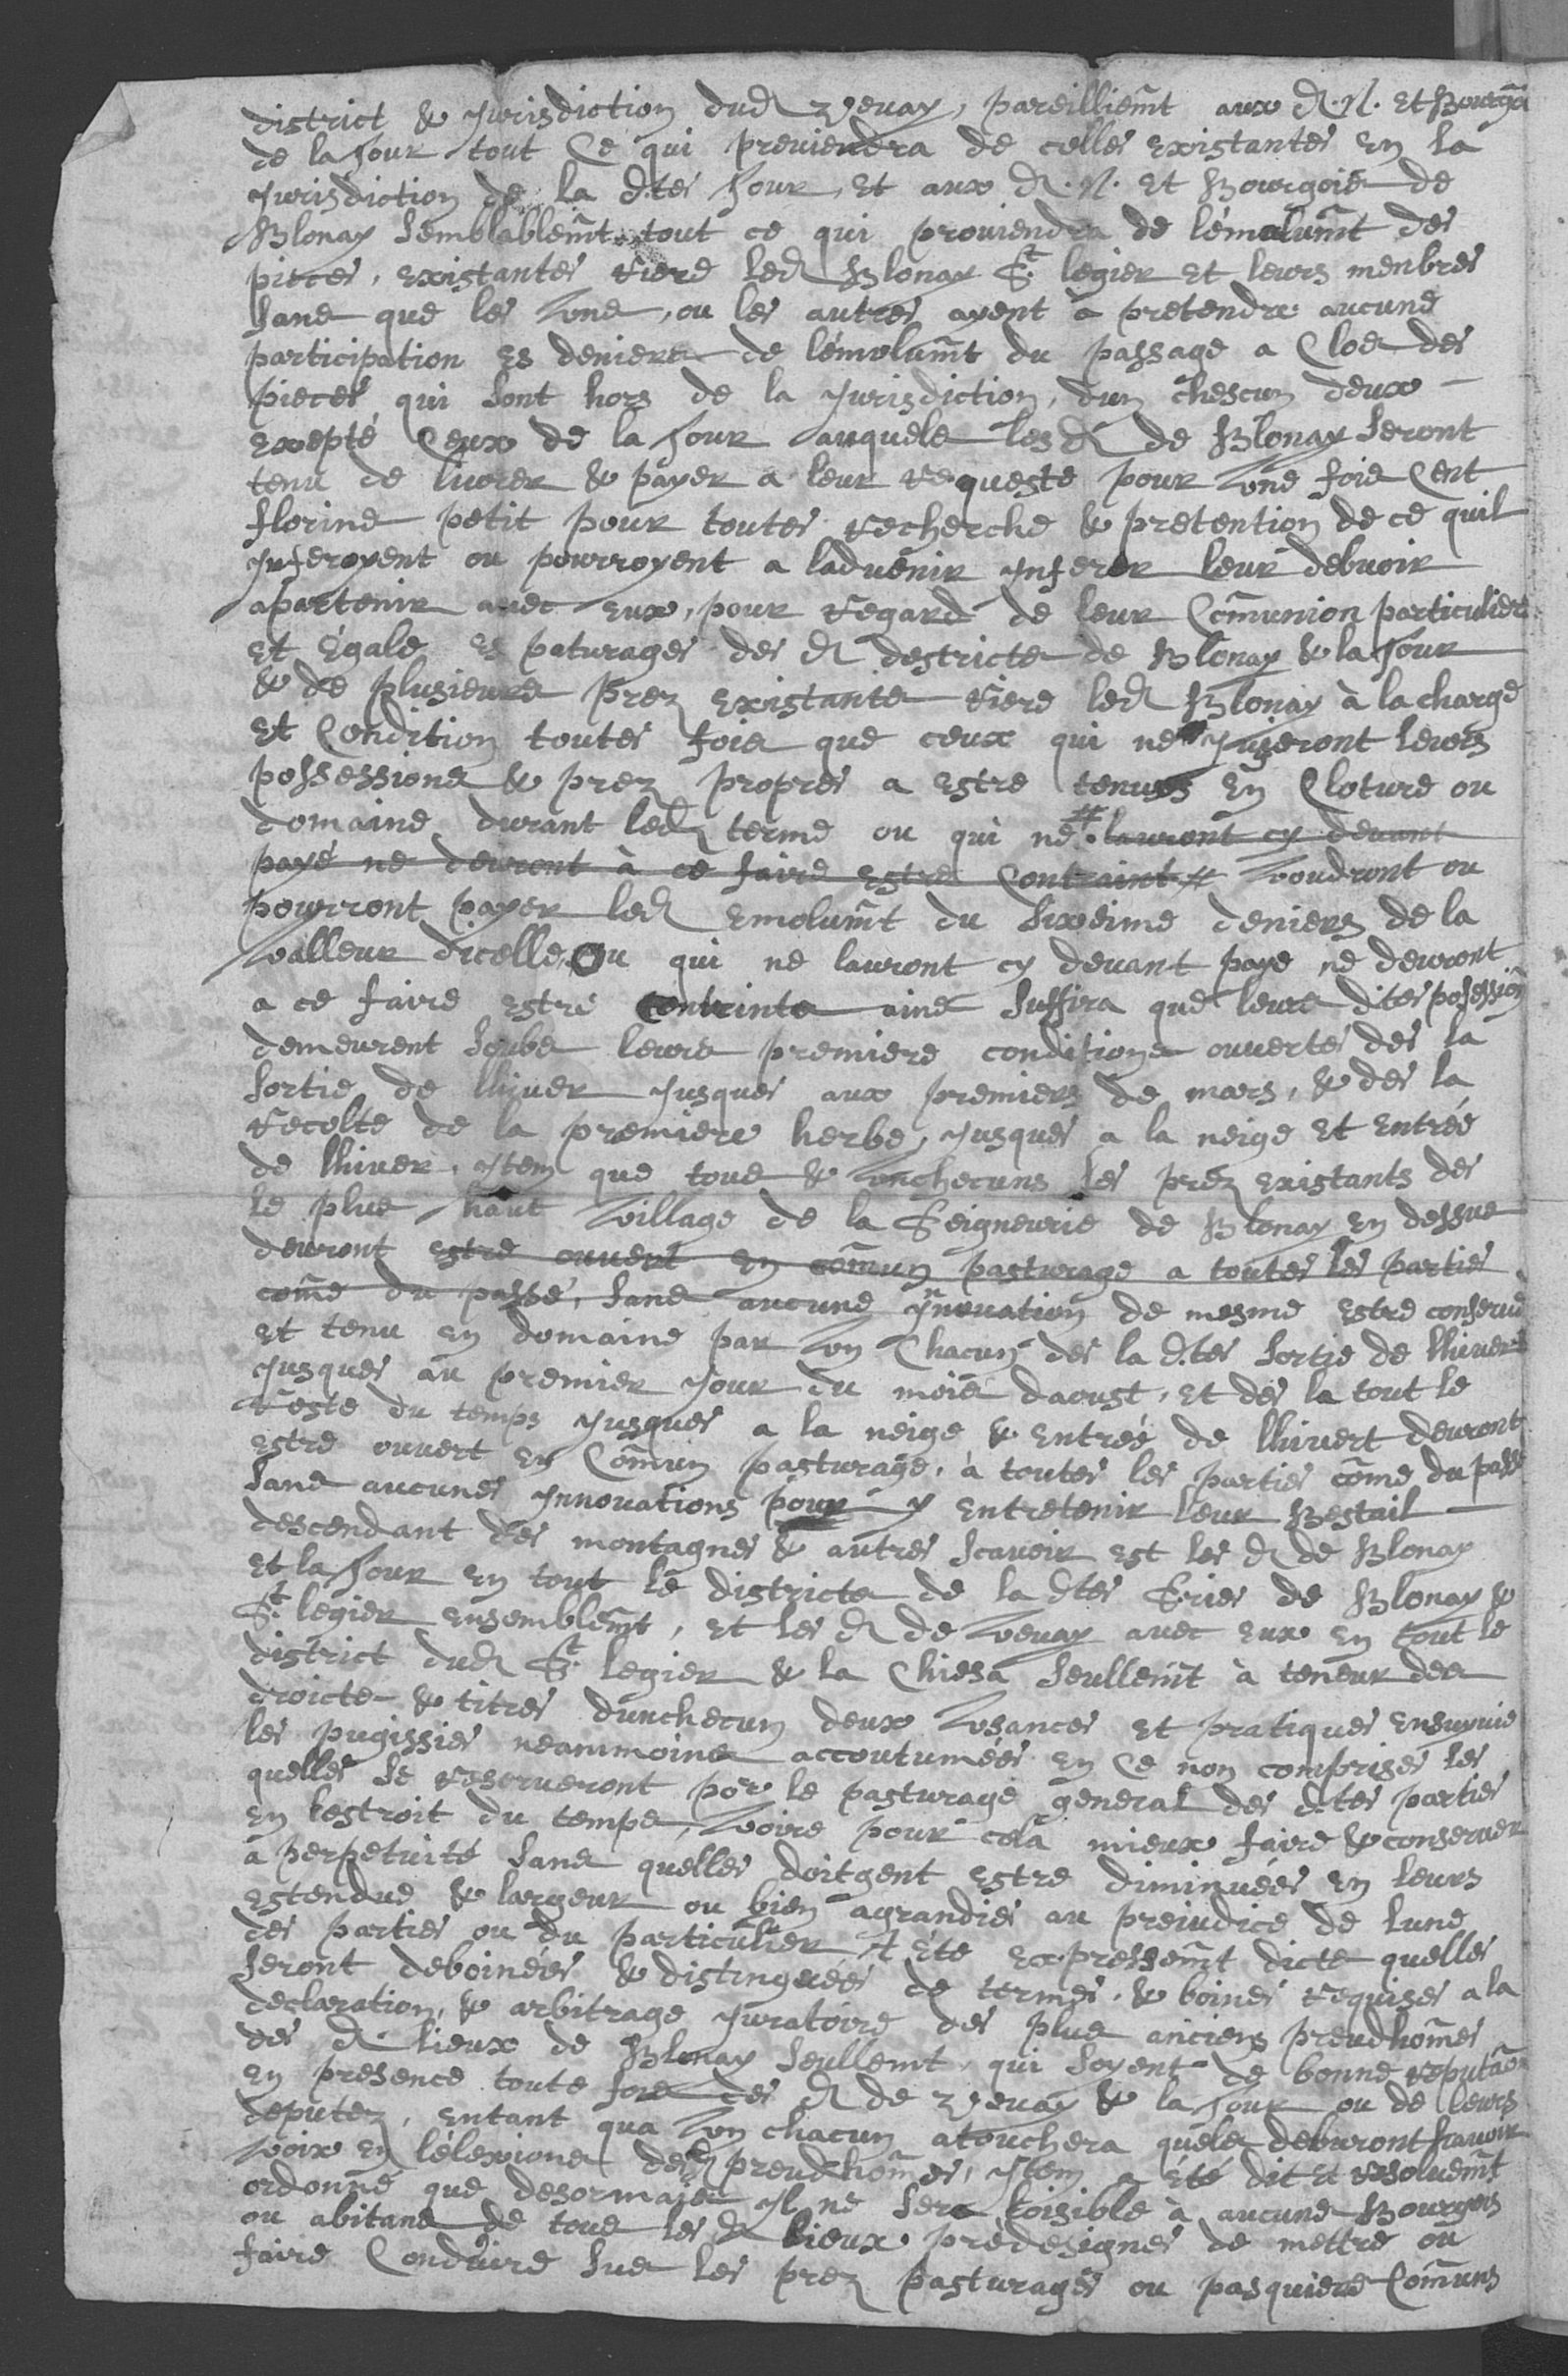 district & Jurisdiction dud Vevay, pareilliemt aux d. N. et Bourgois
de la Tour tout Ce qui proviendra de celles existantes en la
Jurisdiction de la d.tes Tour, et aux d. N. et Bourgois de
Blonay semblablemt tout ce qui proviendra de lémolumt des
pieces, existantes riere led Blonay St legier et leurs menbres
sans que les Uns, ou les autres ayent à pretendre aucune
participation es deniers de lémolumt du passage a Clos des
pieces qui sont hors de la Jurisdiction, dun chescun deux
exepté Ceux de la Tour ausquels lesd de Blonay seront
tenu de livrer & payer a leur requeste pour Une fois Cent
florins petit pour toutes recherche & pretention de ce quil
Inferoyent ou pourroyent a ladvenir Inferer leur debvoir
apartenir avec eux, pour regard de leur Comunion particuliere
et Égale es paturages des d destricts de Blonay & la Tour
& de plusieurs prez existants riere led Blonay à la charge
et Condition toutes fois que ceux qui ne Jugeront leurs
possessions & prez propres a estre tenues en Cloture ou
domaine durant led terme ou qui ne # lauront cy devant
payé ne devront à ce faire estre Contraint # voudront ou
pourront payer led emolumt du sixeime deniers de la
valleur dicelle, Ou qui ne lauront cy devant paye ne devront
a ce faire estre contrints ains suffira que leurs dites posession
demeurent soubs leurs premiere conditions ouvertes des la
sortie de lhiver Jusques aux premiers de mars, & des la
recolte de la premiere herbe, Jusques a la neige et entrée
de lhiver, Item que tous & Unchecuns les prez existants des
le plus haut village de la Seigneurie de Blonay en dessus
devront estre ouvert en comun pasturage a toutes les parties
come du passé, sans aucune Innovation de mesme estre conservé
et tenu en domaine par Un Chacun des la d.tes sortie de lhivert
Jusques au premier Jour du mois daoust, et des la tout le
reste du temps Jusques a la neige & entreé de lhivert devront
estre ouvert en Comun pasturage, à toutes les parties come du passé
sans aucunes Innovations pour y entretenir leur Bestail
descendant des montagnes & autres scavoir est les d de Blonay
et la Tour en tout le districts de la d.tes Sries de Blonay &
St legier ensemblemt, et les d de Vevay avec eux en tout le
district dud St legier & la Chiesa seullemt à teneur des
droicts & titres dunchecun deux Usances et pratiques ensuyvie
les pugissies neammoins accoutumées en Ce non comprises les
quelles se reserveront por le pasturage general des d.tes parties
en lestroit du temps, Voire pour cela mieux faire & conserver
à perpetuité sans quelles doitgent estre diminuées en leurs
estendue & largeur ou bien agrandies au prejudice de lune
des parties ou du particulier et été expressemt dicte quelles
seront deboinées & distinguées de termes, & boines requises a la
declaration, & arbitrage Juratoire des plus anciens preudhomes
des d lieux de Blonay seullemt, qui soyent de bonne reputaon
en presence toute fois des d de Vevay & la Tour ou de leurs
deputez, entant qua Un chacun atouchera quels debvront scavoir
Voix en lélexions desd preudhomes, Item a été dit et resoluemt
ordonné que desormais Il ne sera loisible à aucuns Bourgeois
ou abitans de tous les d lieux prédesignes de mettre ou
faire Conduire sus les prez pasturages ou pasquiers Comuns